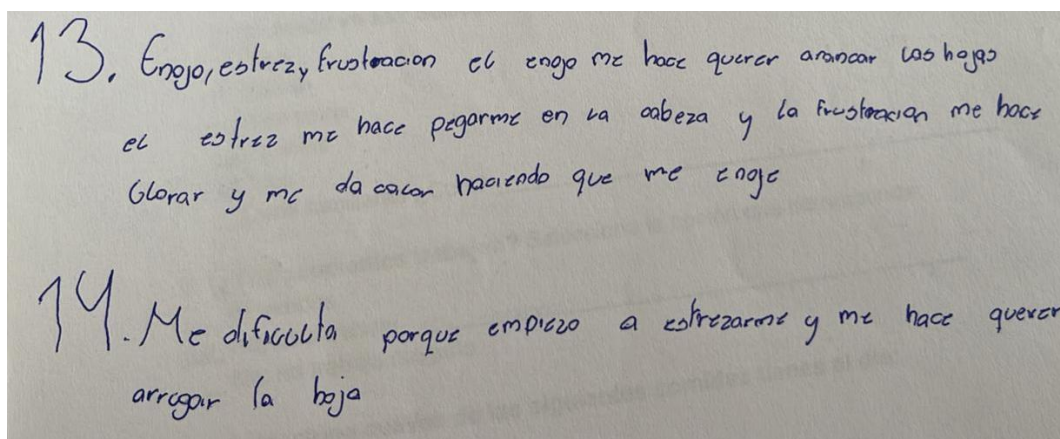 13. Enojo, estrez, y frustracion el enojo me hace querer arancar las hojas
el estrez me hace pegarme en la cabeza y la frustracion me hace
llorar y me da calor haciendo que me enoje
14. Me dificulta porque empiezo a estrezarme y me hace querer
arrugar la hoja